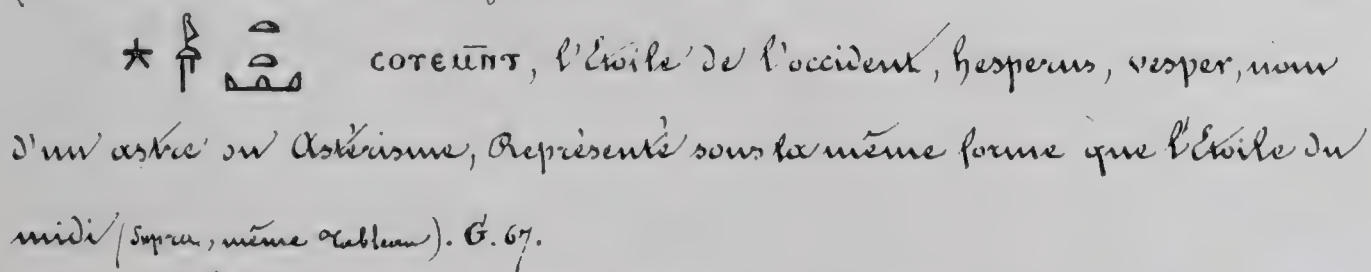 ⲥⲟⲧⲉⲙ̅ⲛ̅ⲧ, l'Étoile de l'occident, hesperus, vesper, nom
d'un astre ou Astérisme, Représenté sous la même forme que l'Étoile du
midi (Supra, même Tableau). G. 67.